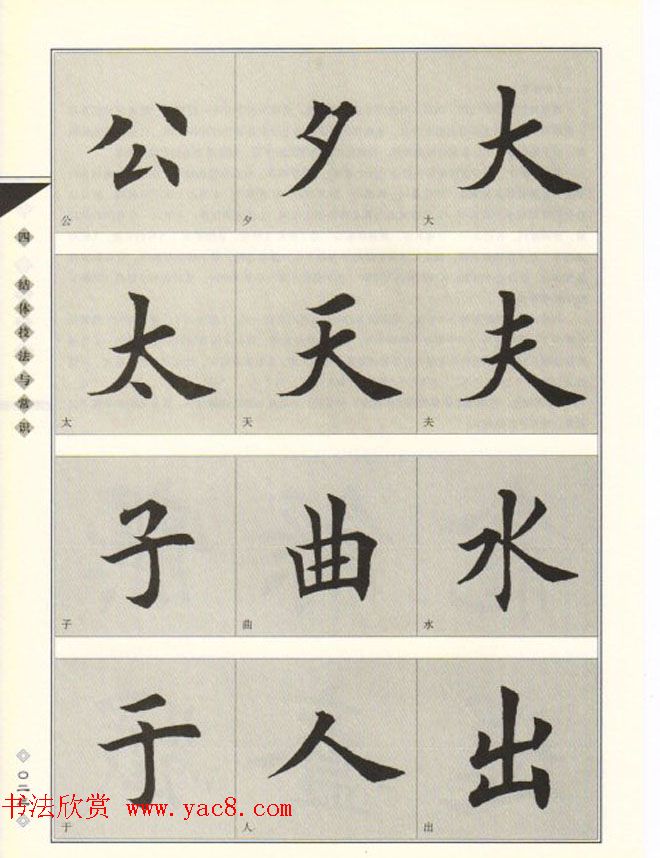 公 夕 大
公 夕 大
太 天 夫
太 天 夫
子 曲 水
子 曲 水
于 人 出
于 人 出
四 结体技法与常识
〇二
书法欣赏 www.yac8.com